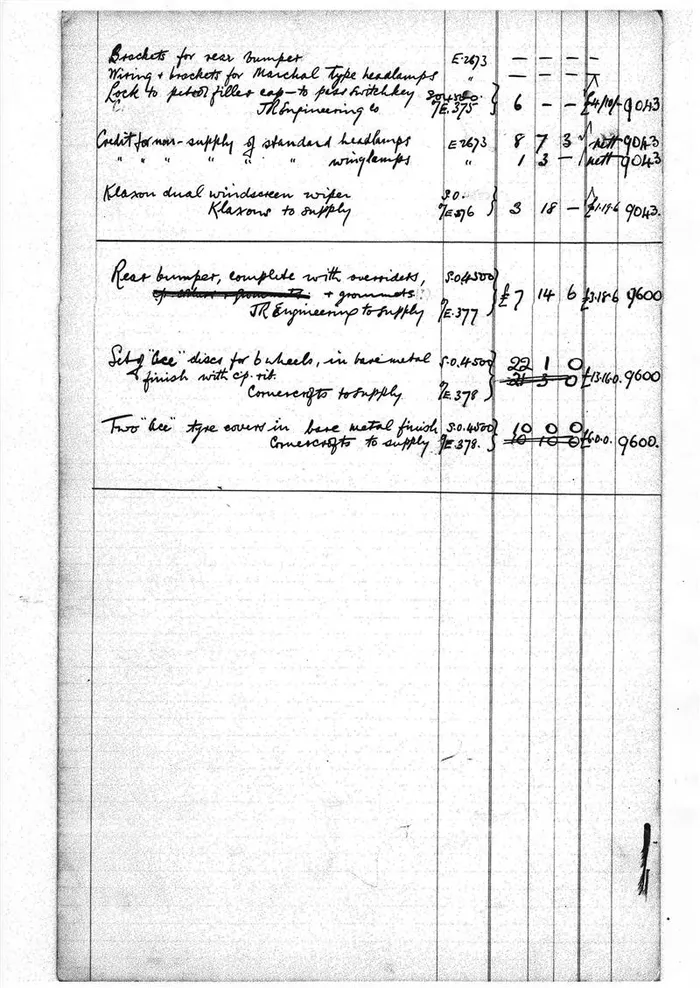 Brackets for rear bumper E.2673 — — —
Wiring + brackets for Marchal type headlamps " — — —
Lock to petrol filler cap — to pass switch key S.O.4500.
JR Engineering Co O/E.375 } 6 — — £4/10/- 9043
Credit for non-supply of standard headlamps E2673 8 7 3 nett 9043
" " " " " " winglamps " 1 3 — nett 9043
Klaxon dual windscreen wiper S.O.
Klaxons to supply O/E376 } 3 18 — £1.19.6 9043.
Rear bumper, complete with overriders, S.O.4500
+ grommets
JR Engineering to supply O/E.377 } £7 14 6 £3.18.6 9600
Set of "Ace" discs for 6 wheels, in bare metal S.O.4500 22 1 0
finish with c.p. rit. 21 3 0 £13.16.0. 9600
Cornercrofts to supply O/E.378
Two "Ace" tyre covers in bare metal finish S.O.4500 10 0 0
Cornercrofts to supply O/E.378. 10 10 0 £6.0.0. 9600.